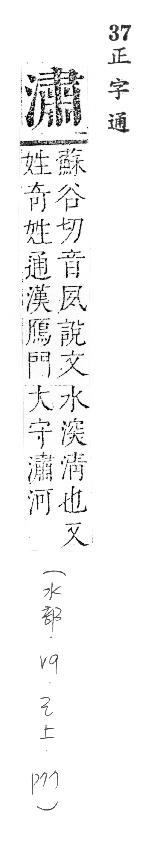 37正字通
潚
蘇谷切音夙說文水深淸也又
姓奇姓通漢鴈門大守潚河
(水部.v9.巳上.p77)